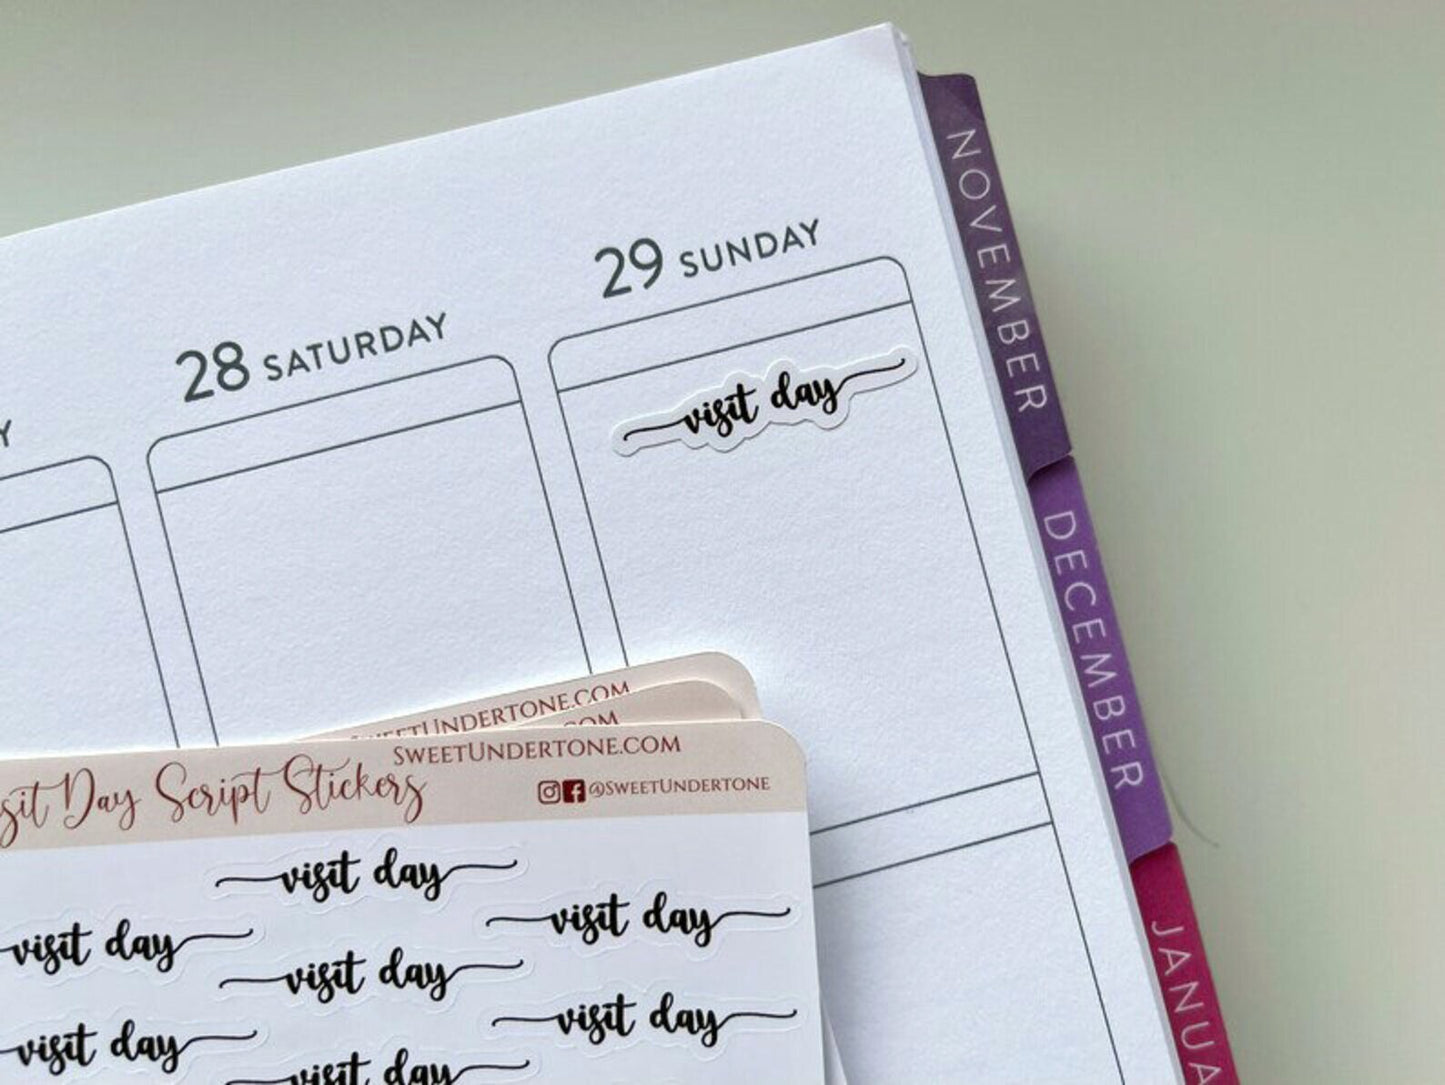 29 SUNDAY
28 SATURDAY
Y
visit day
NOVEMBER
DECEMBER
JANUA
SWEETUNDERTONE.COM
.COM
SWEETUNDERTONE.COM
sit Day Script Stickers
@SWEETUNDERTONE
visit day
visit day
visit day
visit day
visit day
visit day
visit day